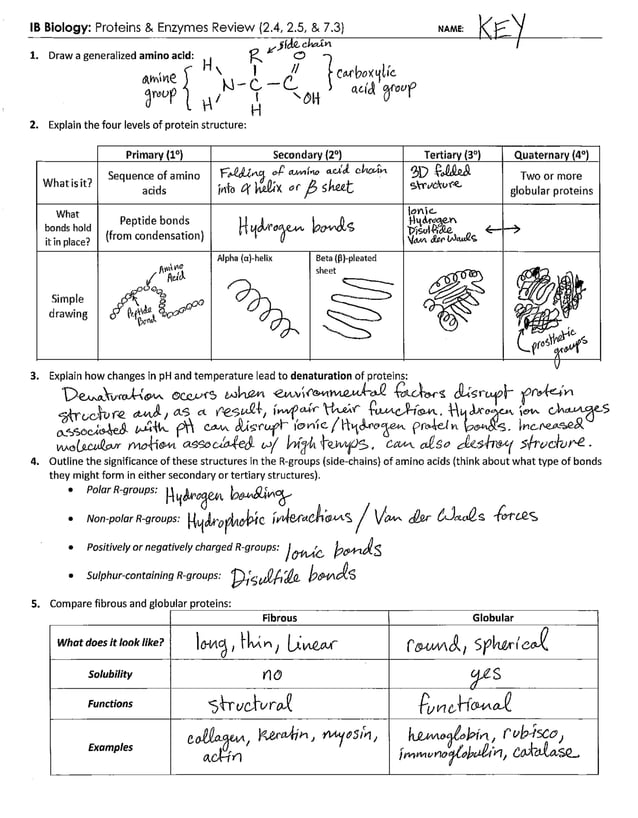 IB Biology: Proteins & Enzymes Review (2.4, 2.5, & 7.3) NAME: KEY
1. Draw a generalized amino acid:
side chain
H R O
amine group
N-C-C
carboxylic acid group
H H OH
2. Explain the four levels of protein structure:
Primary (1°) Secondary (2°) Tertiary (3°) Quaternary (4°)
What is it?
Sequence of amino acids
Folding of amino acid chain
into α helix or β sheet
3D folded
structure
Two or more
globular proteins
What
bonds hold
it in place?
Peptide bonds
(from condensation)
Hydrogen bonds
Ionic
Hydrogen
Disulfide
Van der Waals
Simple
drawing
Amino
Acid
Peptide
Bond
Alpha (α)-helix
Beta (β)-pleated
sheet
prosthetic
groups
3. Explain how changes in pH and temperature lead to denaturation of proteins:
Denaturation occurs when environmental factors disrupt protein
structure and, as a result, impair their function. Hydrogen ion changes
associated with pH can disrupt ionic/Hydrogen protein bonds. Increased
molecular motion associated w/ high temps. can also destroy structure.
4. Outline the significance of these structures in the R-groups (side-chains) of amino acids (think about what type of bonds
they might form in either secondary or tertiary structures).
• Polar R-groups: Hydrogen bonding
• Non-polar R-groups: Hydrophobic interactions / Van der Waals forces
• Positively or negatively charged R-groups: Ionic bonds
• Sulphur-containing R-groups: Disulfide bonds
5. Compare fibrous and globular proteins:
Fibrous Globular
What does it look like? long, thin, Linear round, spherical
Solubility no yes
Functions structural functional
Examples
collagen, keratin, myosin,
actin
hemoglobin, rubisco,
immunoglobulin, catalase